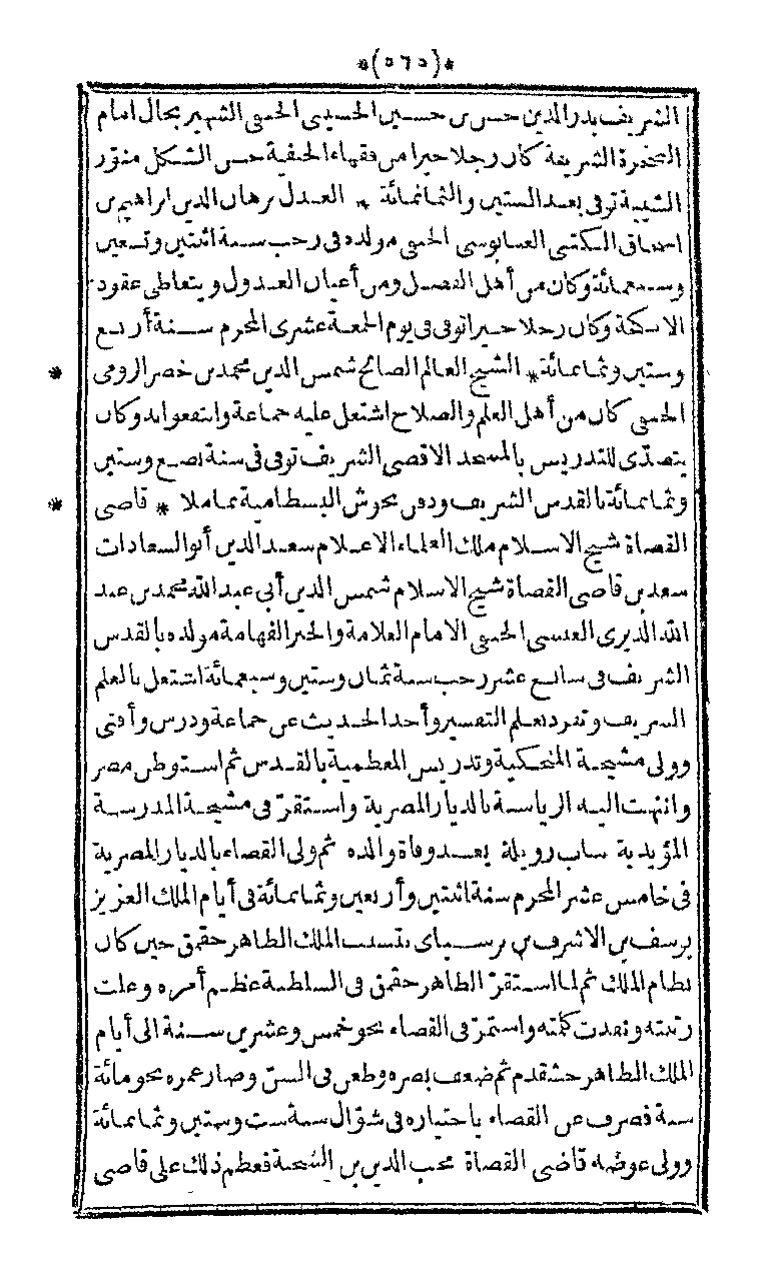 *(٥٦٥)*
الشريف بدر الدين حسن بن حسين الحسيني الحنفي الشهير بخال امام
الصخرة الشريفة كان رجلا خيرا من فقهاء الحنفية حسن الشكل منور
الشيبة توفي بعد الستين والثمانمائة * العدل برهان الدين ابراهيم بن
اسحاق الحنفي مولده في رجب سنة اثنتين وتسعين
وسبعمائة وكان من أهل الفضل ومن أعيان العدول ويتعاطى عقود
الانكحة وكان رجلا خيرا توفي في يوم الجمعة عشرى المحرم سنة أربع
وستين وثمانمائة * الشيخ العالم الصالح شمس الدين محمد بن خضر الرومى *
الحنفي كان من أهل العلم والصلاح اشتغل عليه جماعة وانتفعوا به وكان
يتصدى للتدريس بالمسجد الاقصى الشريف توفى في سنة بضع وستين
وثمانمائة بالقدس الشريف ودفن بحوش البسطامية بماملا * قاضى *
القضاة شيخ الاسلام ملك العلماء الاعلام سعد الدين أبو السعادات
سعد بن قاضى القضاة شيخ الاسلام شمس الدين أبى عبد الله محمد بن عبد
الله الديرى العبسى الحنفى الامام العلامة والحبر الفهامة مولده بالقدس
الشريف في سابع عشر رجب سنة ثمان وستين وسبعمائة اشتغل بالعلم
الشريف وتفرد بعلم التفسير وأخذ الحديث عن جماعة ودرس وأفتى
وولى مشيخة المنجكية وتدريس المعظمية بالقدس ثم استوطن مصر
وانتهت اليه الرياسة بالديار المصرية واستقر في مشيخة المدرسة
المؤيدية بباب زويلة بعد وفاة والده ثم ولى القضاء بالديار المصرية
فى خامس عشر المحرم سنة اثنتين وأربعين وثمانمائة في أيام الملك العزيز
يوسف بن الاشرف بن برسباى بتسبب الملك الظاهر جقمق حين كان
نظام الملك ثم لما استقر الظاهر جقمق فى السلطنة عظم أمره وعلت
رتبته ونفذت كلمته واستمر في القضاء نحو خمس وعشرين سنة الى أيام
الملك الظاهر خشقدم ثم ضعف بصره وطعن فى السن وصار عمره نحو مائة
سنة فصرف عن القضاء باختياره في شوال سنة ست وستين وثمانمائة
وولى عوضه قاضى القضاة محب الدين بن الشحنة فعظم ذلك على قاضى